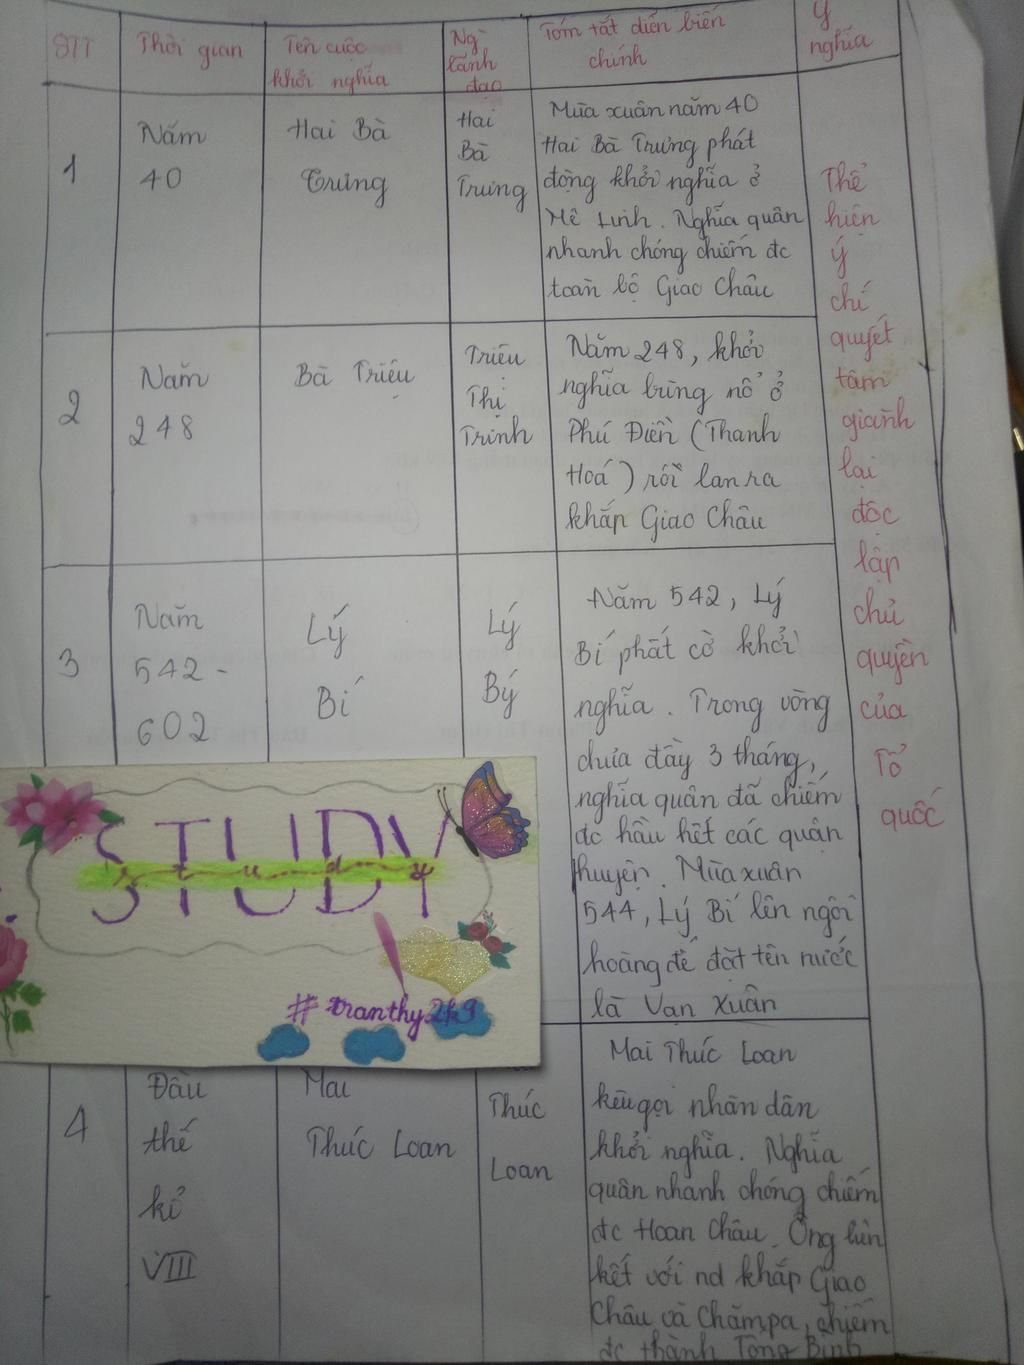 STT
Thời gian
Tên cuộc
khởi nghĩa
Ng
lãnh
đạo
Tóm tắt diễn biến
chính
Ý
nghĩa
1
Năm
40
Hai Bà
Trưng
Hai
Bà
Trưng
Mùa xuân năm 40
Hai Bà Trưng phát
động khởi nghĩa ở
Mê Linh. Nghĩa quân
nhanh chóng chiếm đc
toàn bộ Giao Châu
Thể
hiện
ý
chí
quyết
tâm
giành
lại
độc
lập
chủ
quyền
của
Tổ
quốc
2
Năm
248
Bà Triệu
Triệu
Thị
Trinh
Năm 248, khởi
nghĩa bùng nổ ở
Phú Điền (Thanh
Hoá) rồi lan ra
khắp Giao Châu
3
Năm
542 -
602
Lý
Bí
Lý
Bý
Năm 542, Lý
Bí phất cờ khởi
nghĩa. Trong vòng
chưa đầy 3 tháng,
nghĩa quân đã chiếm
đc hầu hết các quận
huyện. Mùa xuân
544, Lý Bí lên ngôi
hoàng đế đặt tên nước
là Vạn Xuân
STUDY
study
#tranthy.2k9
4
Đầu
thế
kỉ
VIII
Mai
Thúc Loan
Thúc
Loan
Mai Thúc Loan
kêu gọi nhân dân
khởi nghĩa. Nghĩa
quân nhanh chóng chiếm
đc Hoan Châu. Ông liên
kết với nd khắp Giao
Châu và Chămpa, chiếm
đc thành Tống Bình